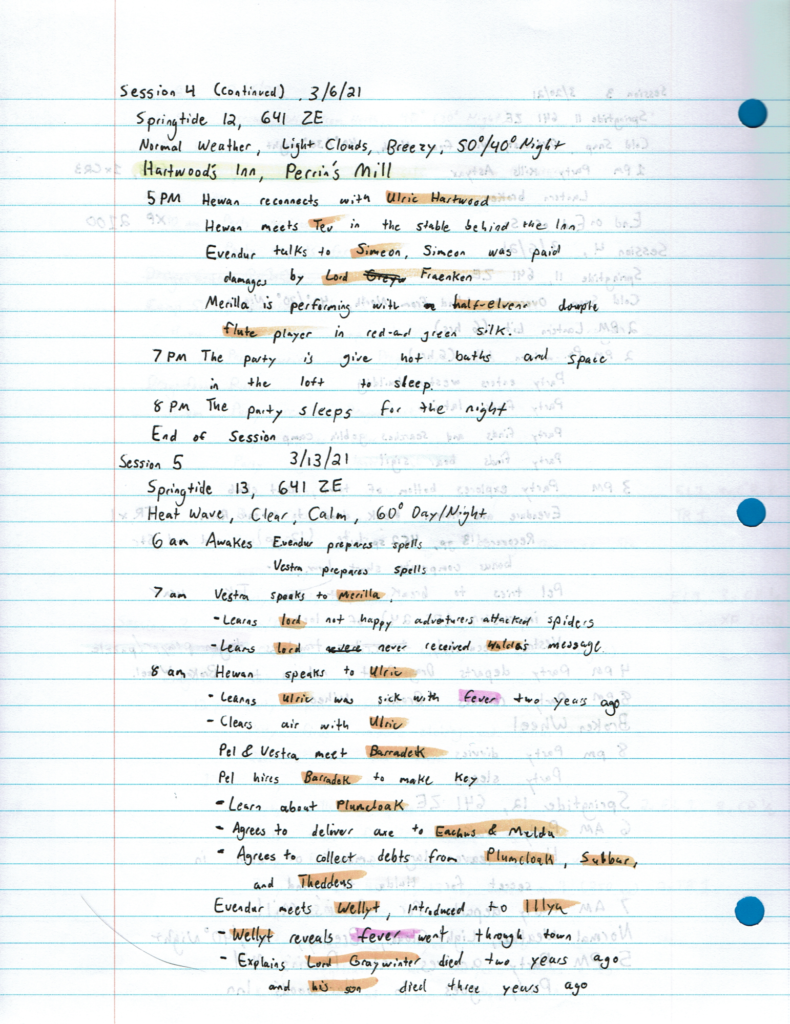 Session 4 (continued) 3/6/21
Springtide 12, 641 ZE
Normal Weather, Light Clouds, Breezy, 50°/40° Night
Hartwood's Inn, Perrin's Mill
5 PM Hewan reconnects with Ulric Hartwood
Hewan meets Tev in the stable behind the Inn
Evendur talks to Simeon, Simeon was paid
damages by Lord Fraenken
Merilla is performing with half-elven
flute player in red-and green silk.
7 PM The party is give hot baths and space
in the loft to sleep.
8 PM The party sleeps for the night
End of Session
Session 5 3/13/21
Springtide 13, 641 ZE
Heat Wave, Clear, Calm, 60° Day/Night
6 am Awakes Evendur prepares spells
Vestra prepares spells
7 am Vestra speaks to Merilla.
- Learns lord not happy adventurers attacked spiders
- Learns lord never received Halda's message.
8 am Hewan speaks to Ulric
- Learns Ulric was sick with fever two years ago
- Clears air with Ulric
Pel & Vestra meet Barradek
Pel hires Barradek to make key
- Learn about Plumcloak
- Agrees to deliver axe to Eachus & Meldu
- Agrees to collect debts from Plumcloak, Subbar,
and Theddeus
Evendur meets Wellyt, introduced to Illya
- Wellyt reveals fever went through town
- Explains Lord Graywinter died two years ago
and his son died three years ago